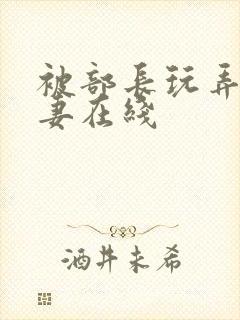 被部長玩弄
妻在綫
酒井未希